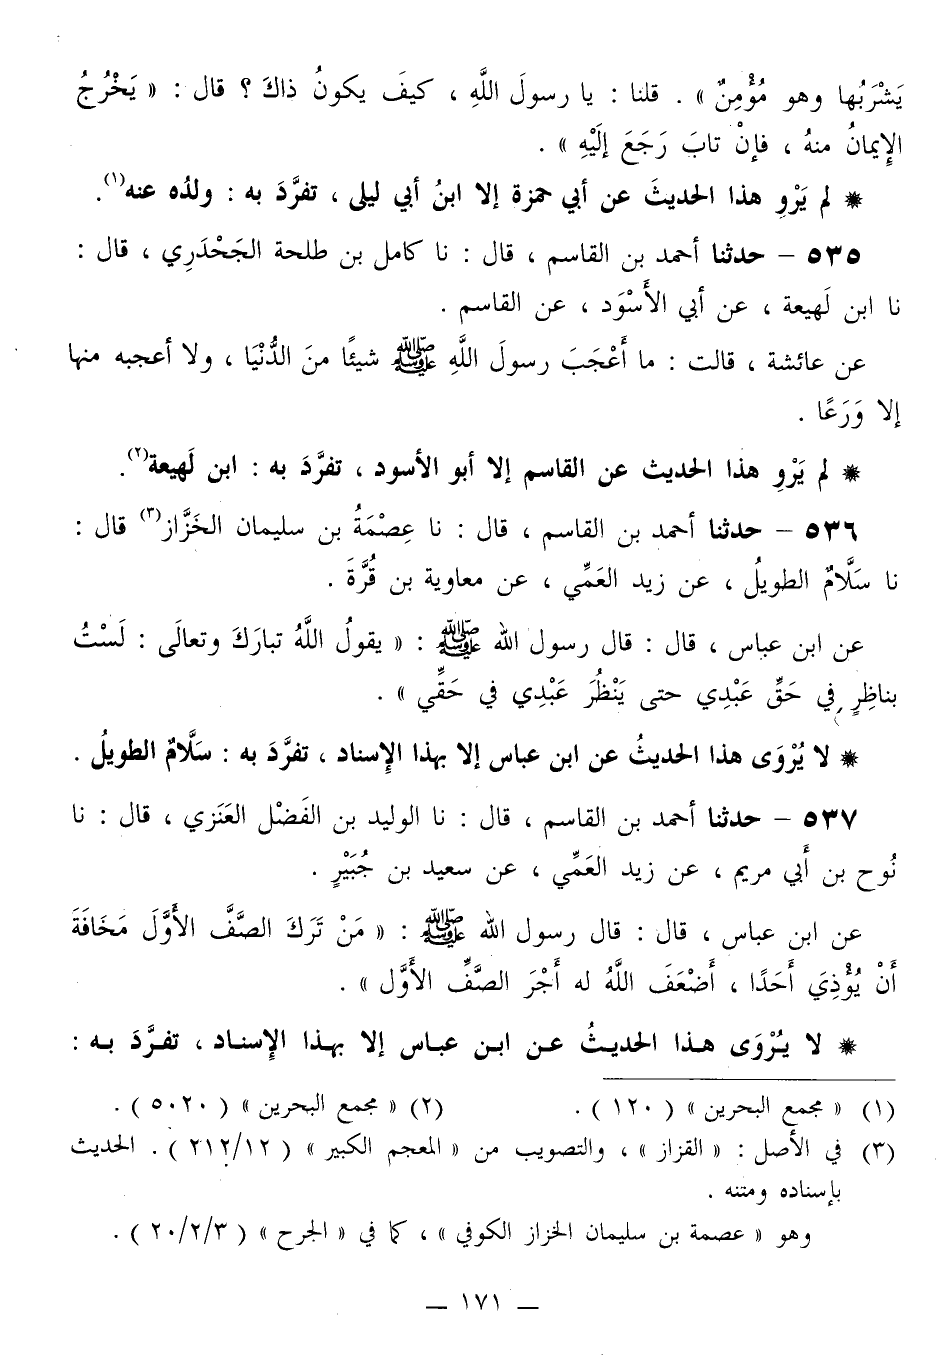 يَشْرَبُها وهو مُؤْمِنٌ » . قلنا : يا رسولَ اللَّهِ ، كيفَ يكونُ ذاكَ ؟ قال : « يَخْرُجُ
الإِيمانُ منهُ ، فإنْ تابَ رَجَعَ إلَيْهِ » .
* لم يَرْوِ هذا الحديثَ عن أبي حمزة إلا ابنُ أبي ليلى ، تفرَّدَ به : ولدُه عنه(١).
٥٣٥ – حدثنا أحمد بن القاسم ، قال : نا كامل بن طلحة الجَحْدَرِي ، قال :
نا ابن لَهيعة ، عن أبي الأَسْوَد ، عن القاسم .
عن عائشة ، قالت : ما أَعْجَبَ رسولَ اللَّهِ ﷺ شيئًا منَ الدُّنْيَا ، ولا أعجبه منها
إلا وَرَعًا .
* لم يَرْوِ هذا الحديث عن القاسم إلا أبو الأسود ، تفرَّدَ به : ابن لَهيعة(٢).
٥٣٦ – حدثنا أحمد بن القاسم ، قال : نا عِصْمَةُ بن سليمان الخَزَّاز(٣) قال :
نا سَلَّامٌ الطويلُ ، عن زيد العَمِّي ، عن معاوية بن قُرَّةَ .
عن ابن عباس ، قال : قال رسول الله ﷺ : « يقولُ اللَّهُ تبارَكَ وتعالَى : لَسْتُ
بناظِرٍ في حَقِّ عَبْدِي حتى يَنْظُرَ عَبْدِي في حَقِّي » .
* لا يُرْوَى هذا الحديثُ عن ابن عباس إلا بهذا الإِسناد ، تفرَّدَ به : سَلَّامٌ الطويلُ .
٥٣٧ – حدثنا أحمد بن القاسم ، قال : نا الوليد بن الفَضْل العَنَزي ، قال : نا
نُوح بن أَبي مريم ، عن زيد العَمِّي ، عن سعيد بن جُبَيْرٍ .
عن ابن عباس ، قال : قال رسول الله ﷺ : « مَنْ تَرَكَ الصَّفَّ الأَوَّلَ مَخَافَةَ
أَنْ يُؤْذِيَ أَحَدًا ، أَضْعَفَ اللَّهُ له أَجْرَ الصَّفِّ الأَوَّل » .
* لا يُرْوَى هذا الحديثُ عن ابن عباس إلا بهذا الإِسناد ، تفرَّدَ به :
(١) « مجمع البحرين » ( ١٢٠ ) . (٢) « مجمع البحرين » ( ٥٠٢٠ ) .
(٣) في الأصل : « القزاز » ، والتصويب من « المعجم الكبير » ( ٢١٢/١٢ ) . الحديث
بإسناده ومتنه .
وهو « عصمة بن سليمان الخزاز الكوفي » ، كما في « الجرح » ( ٢٠/٢/٣ ) .
– ١٧١ –